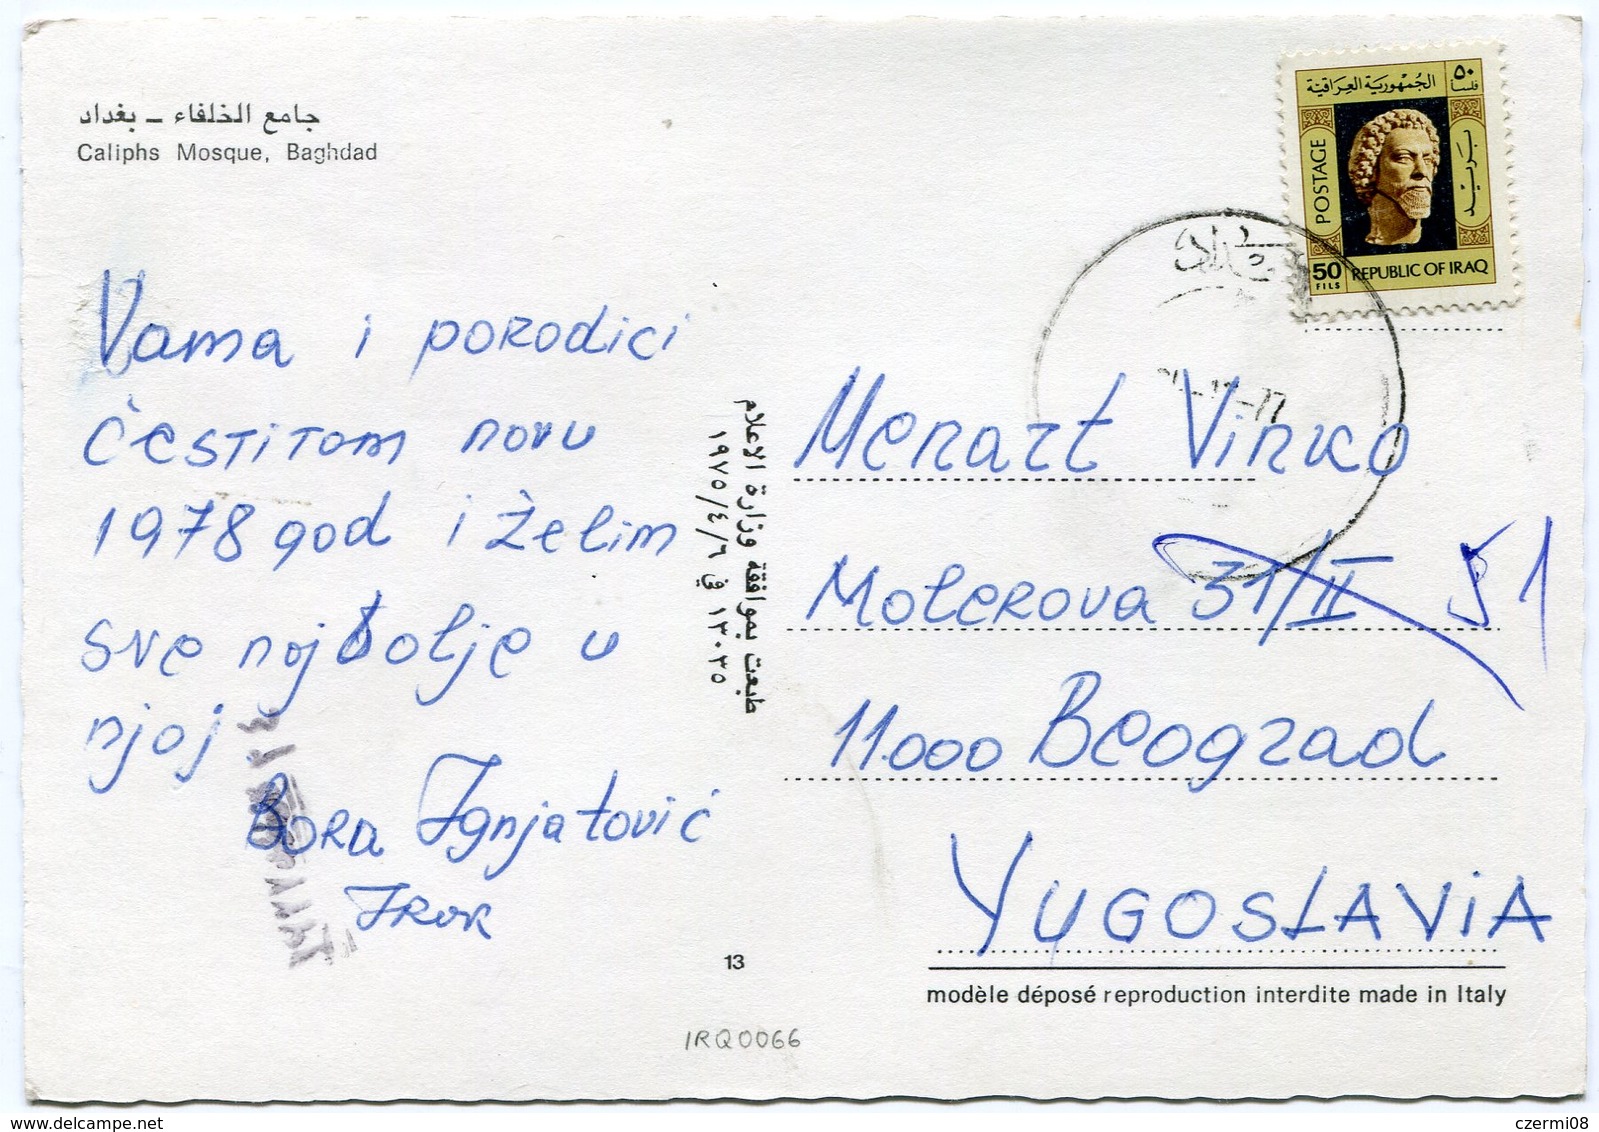 جامع الخلفاء – بغداد
Caliphs Mosque, Baghdad
Vama i porodici
čestitam novu
1978 god i želim
sve najbolje u
njoj
Bora Ignjatović
Irak
طبعت بموافقة وزارة الاعلام
١٣٠٣٥ في ١٩٧٥/٤/٦
٥٠
فلسا
الجمهورية العراقية
POSTAGE
بريد
50
FILS
REPUBLIC OF IRAQ
بغداد
-77
Menart Vinko
Molerova 31/II 51
11.000 Beograd
YUGOSLAViA
13
modèle déposé reproduction interdite made in Italy
IRQ0066
czermi08